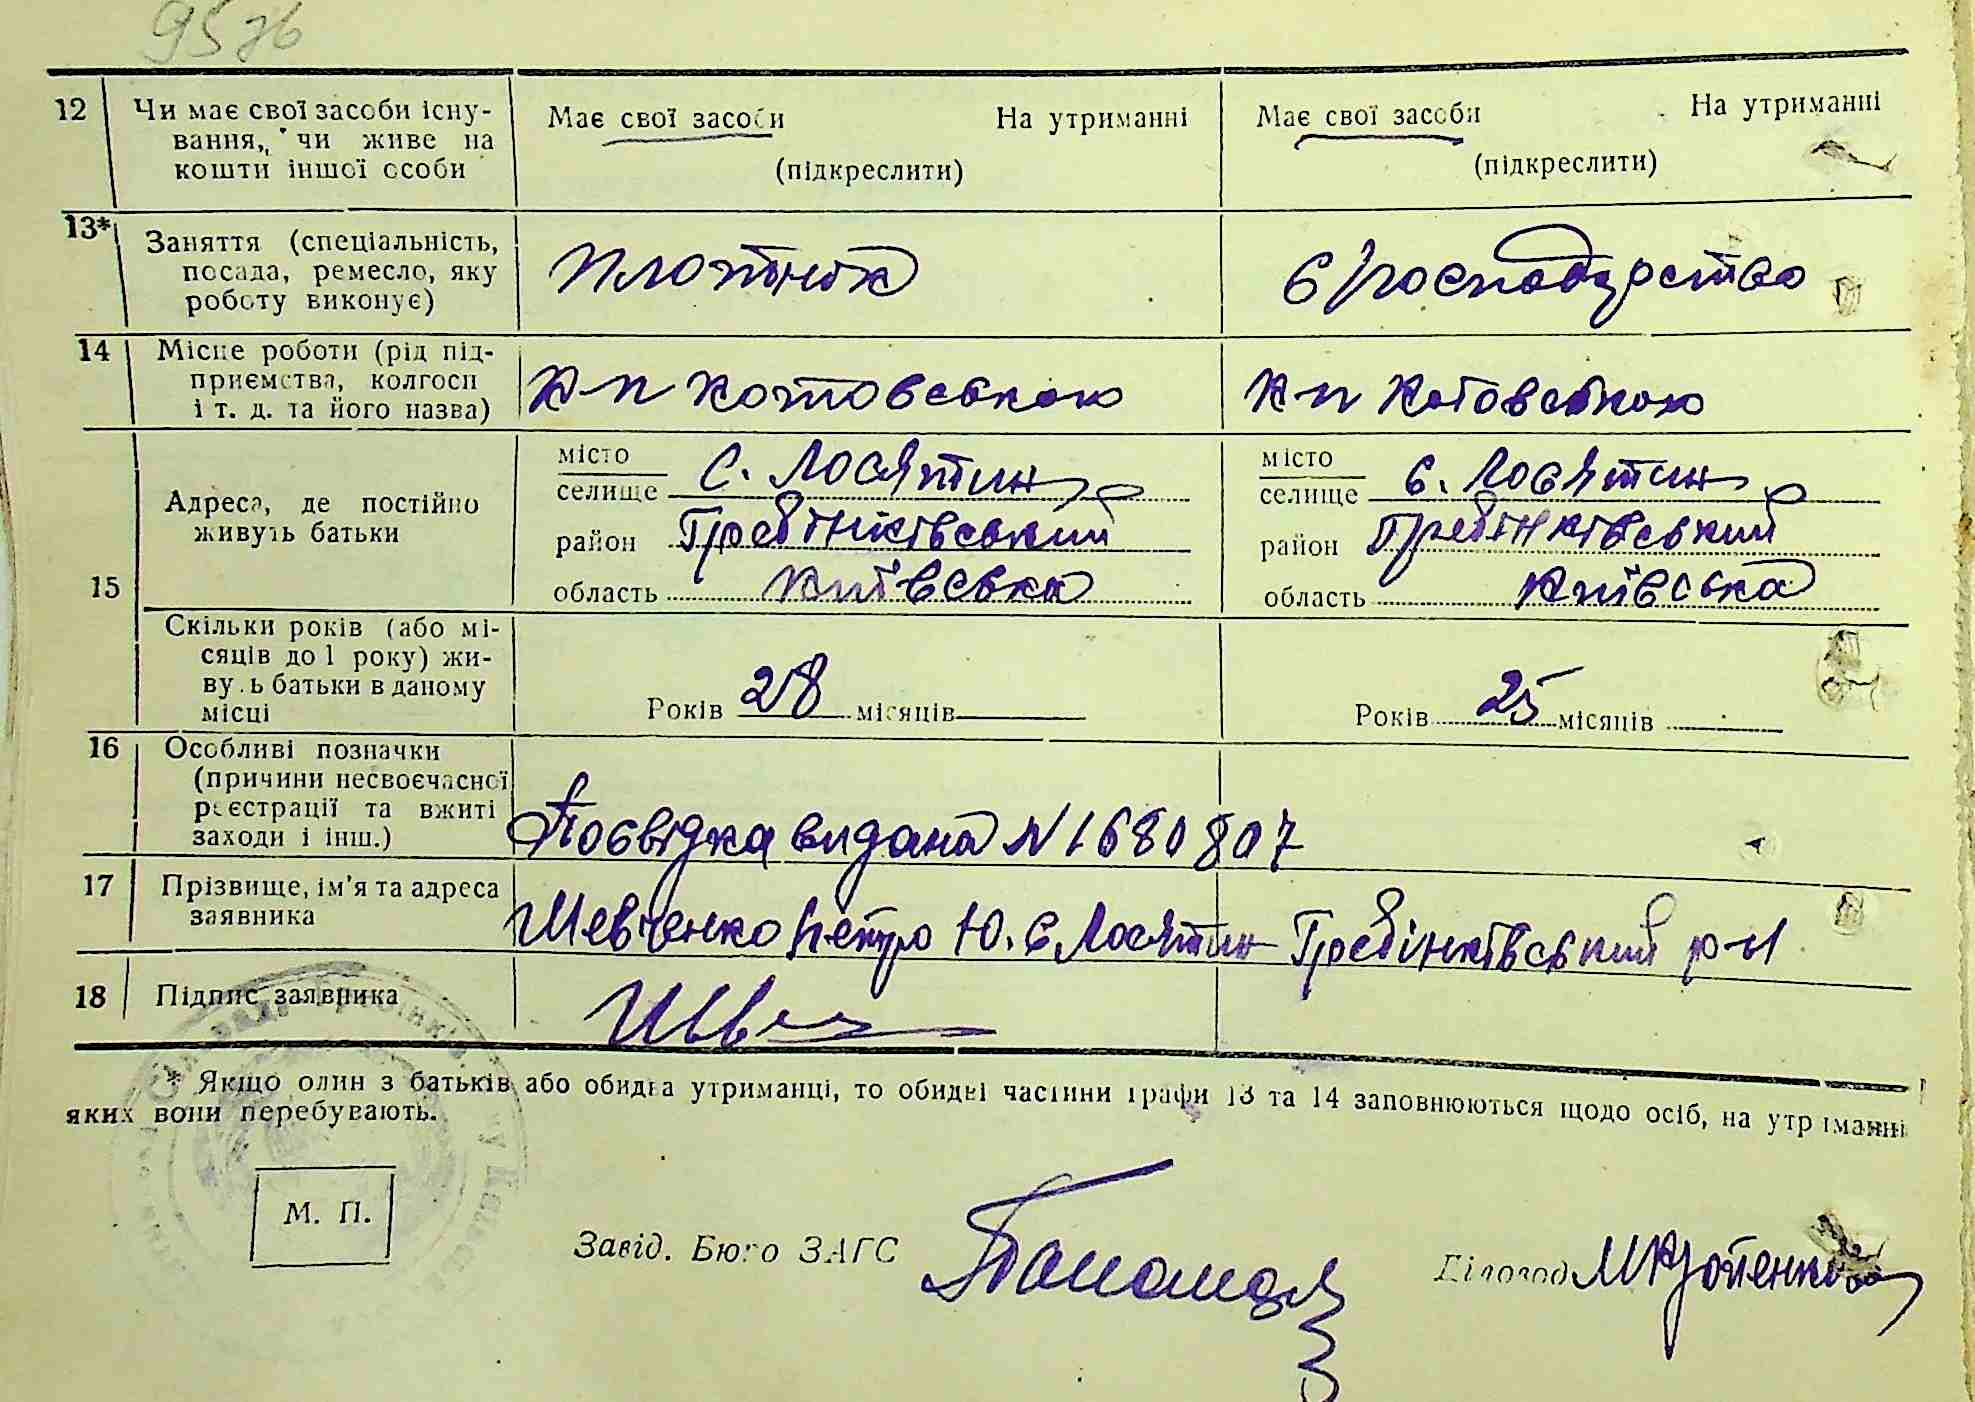 12 Чи має свої засоби існу- Має свої засоби На утриманні Має свої засоби На утриманні
вання, чи живе на
кошти іншої особи (підкреслити) (підкреслити)
13* Заняття (спеціальність, Плотнік с/господарство
посада, ремесло, яку
роботу виконує)
14 Місце роботи (рід під- К-п Котовського К-п Котовського
приємства, колгосп
і т. д. та його назва)
місто с. Лосятин місто с. Лосятин
селище селище
Адреса, де постійно район Гребінківський район Гребінківський
живуть батьки
15 область Київська область Київська
Скільки років (або мі-
сяців до 1 року) жи-
вуть батьки в даному Років 28 місяців Років 25 місяців
місці
16 Особливі позначки
(причини несвоєчасної
реєстрації та вжиті
заходи і інш.) Посвідка видана N 1680807
17 Прізвище, ім'я та адреса
заявника Шевченко Петро Ю. с Лосятин Гребінківський р-н
18 Підпис заявника Шев
* Якщо один з батьків або обидва утриманці, то обидві частини графи 13 та 14 заповнюються щодо осіб, на утриманні
яких вони перебувають.
М. П.
Завід. Бюро ЗАГС Діловод